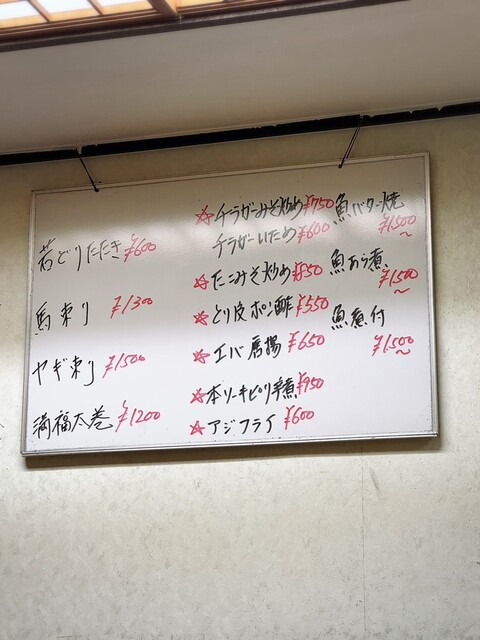 若どりたたき ¥600
馬刺り ¥1300
ヤギ刺り ¥1500
満福太巻 ¥1200
☆チラガーみそ炒め ¥750
チラガーいため ¥600
☆たこみそ炒め ¥850
☆とり皮ポン酢 ¥550
☆エバ唐揚 ¥650
☆本ソーキピリ辛煮 ¥950
☆アジフライ ¥600
魚バター焼
¥1,500〜
魚あら煮
¥1,500〜
魚煮付
¥1,500〜